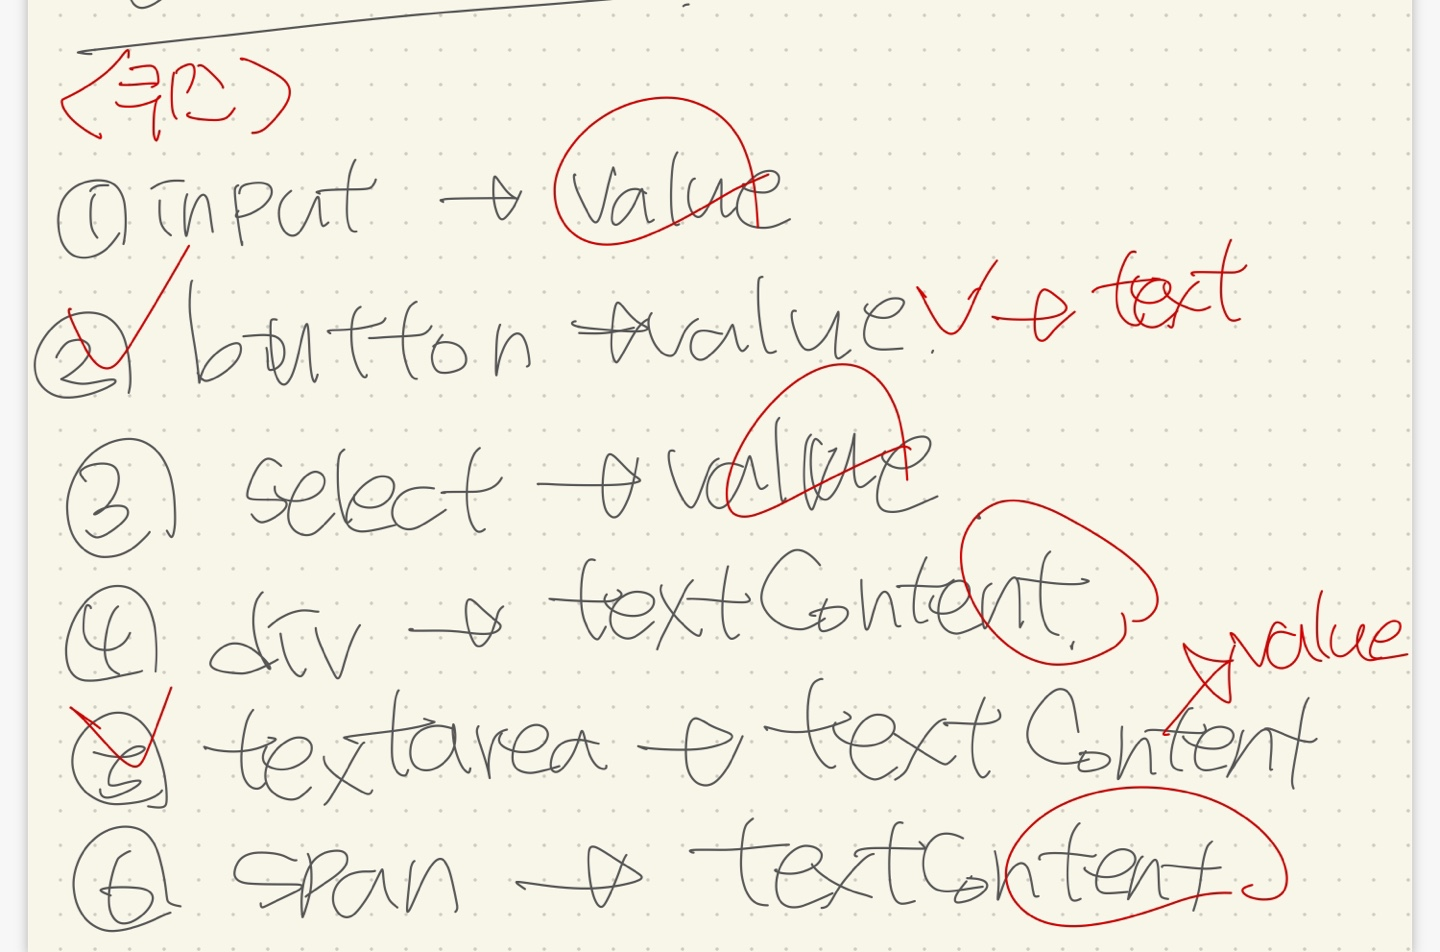 <구분>
① input → value
② button → value. V → text
③ select → value
④ div → textContent.
→ value
⑤ textarea → textContent
⑥ span → textContent